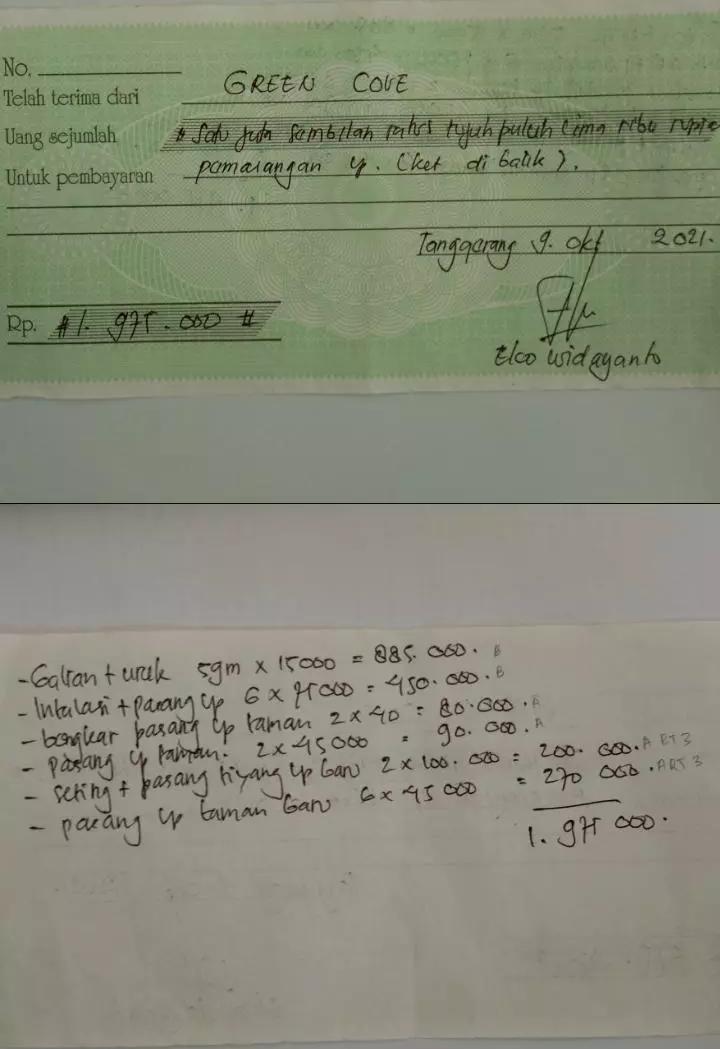 No.
Telah terima dari GREEN COVE
Uang sejumlah # Satu juta Sembilan ratus tujuh puluh lima ribu rupia
Untuk pembayaran pamasangan lp. (ket di balik).
Tanggerang 9. okt 2021.
Rp. #1. 975.000 #
Eko widayanto
- Galian + uruk 59m x 15000 = 885.000. B
- Intalasi + pasang lp 6 x 75000 = 450.000. B
- bongkar pasang lp taman 2 x 40 = 80.000. A
- pasang lp taman. 2 x 45000 = 90.000. A
- seting + pasang tiyang lp baru 2 x 100.000 = 200.000. A RT3
- pasang lp taman baru 6 x 45 000 = 270 000. A RT3
1. 975 000.